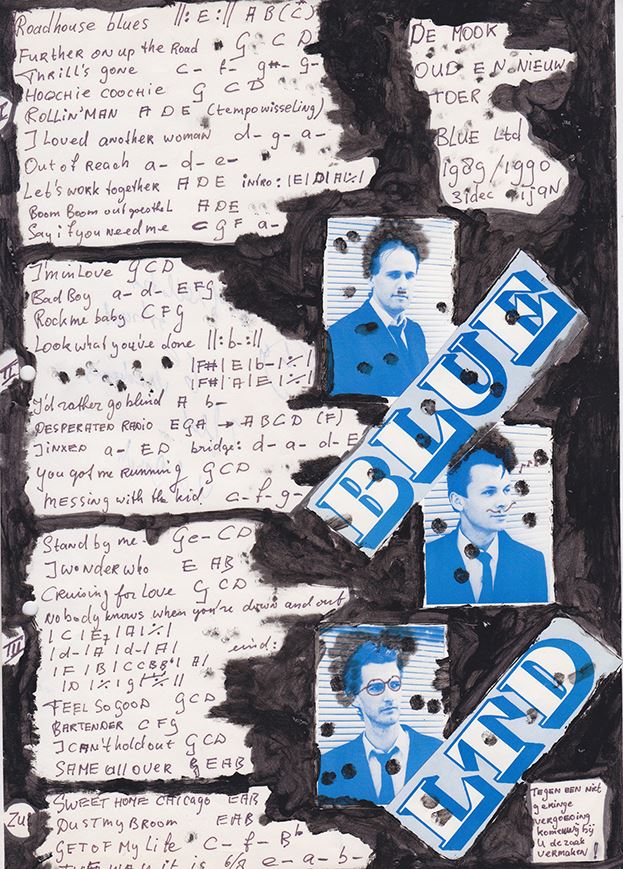 Roadhouse blues ||: E :|| A B (C)
FURTHER ON UP the Road G C D
Thrill's gone c- f- g#- g-
HOOCHIE COOCHIE G C D
ROLLIN' MAN A D E (tempowisseling)
I Loved another woman d- g- a-
Out of Reach a- d- e-
Let's work together A D E intro: |E|D|A|٪|
BOOM BOOM A D E
Say if you need me C G F a-
DE MOOK
OUD EN NIEUW
TOER
BLUE Ltd
1989/1990
31dec 1jan
I
I'm in Love G C D
Bad Boy a- d- E F G
Rock me baby C F G
Look what you've done ||: b- :||
|F#|E|b-|٪|
|F#|A|E|٪|
I'd rather go blind A b-
DESPERATED RADIO E G A → A B C D (F)
JINXED a- E D bridge: d- a- d- E
You got me RUNNING G C D
MESSING with the kid c- f- g-
II
BLUE
Stand by me G e- C D
I wonder who E A B
Cruising for Love G C D
Nobody knows when you're down and out
| C | E7 | A | ٪ |
| d- | A | d- | A | eind:
| F | B | C
| D | ٪ | g | ٪ ||
FEEL SO GOOD G C D
BARTENDER C F G
I CAN't hold out G C D
SAME all over E A B
III
LTD
SWEET HOME CHICAGO E A B
DUST my BROOM E A B
GET OF MY Life C- f- B♭
it is 6/8 e- a- b-
Zu
TEGEN EEN niet
geringe
vergoeding
komen wij bij
U de zaak
vermaken!